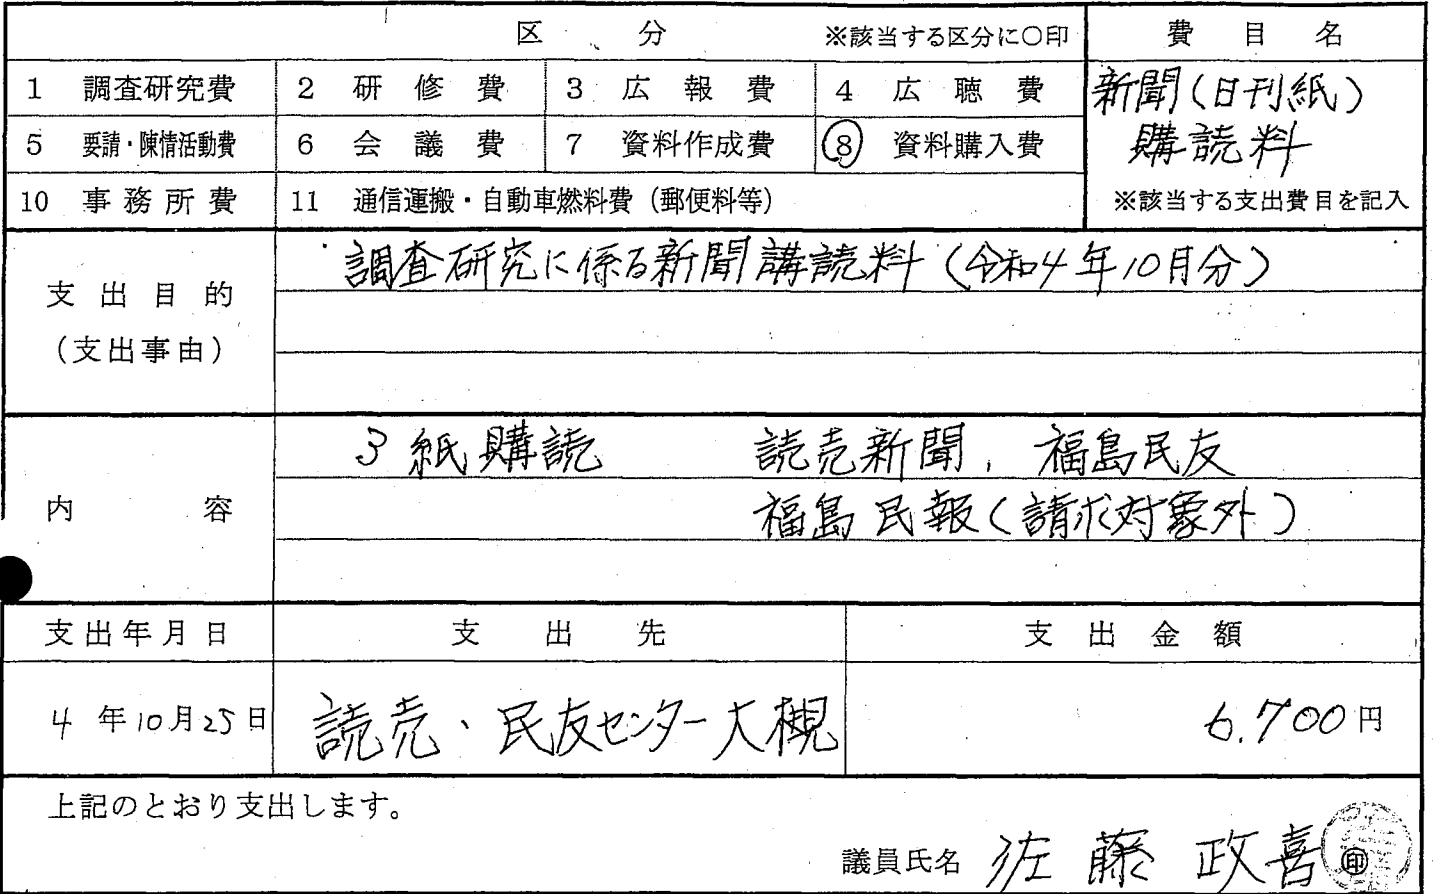 区 分 ※該当する区分に○印 費目名
1 調査研究費 2 研修費 3 広報費 4 広聴費 新聞(日刊紙)
5 要請・陳情活動費 6 会議費 7 資料作成費 ⑧ 資料購入費 購読料
10 事務所費 11 通信運搬・自動車燃料費(郵便料等) ※該当する支出費目を記入
調査研究に係る新聞講読料(令和4年10月分)
支出目的
(支出事由)
3紙購読 読売新聞, 福島民友
内容 福島民報(請求対象外)
支出年月日 支出先 支出金額
4年10月25日 読売、民友センター大槻 6.700円
上記のとおり支出します。
議員氏名 佐藤 政喜 ㊞